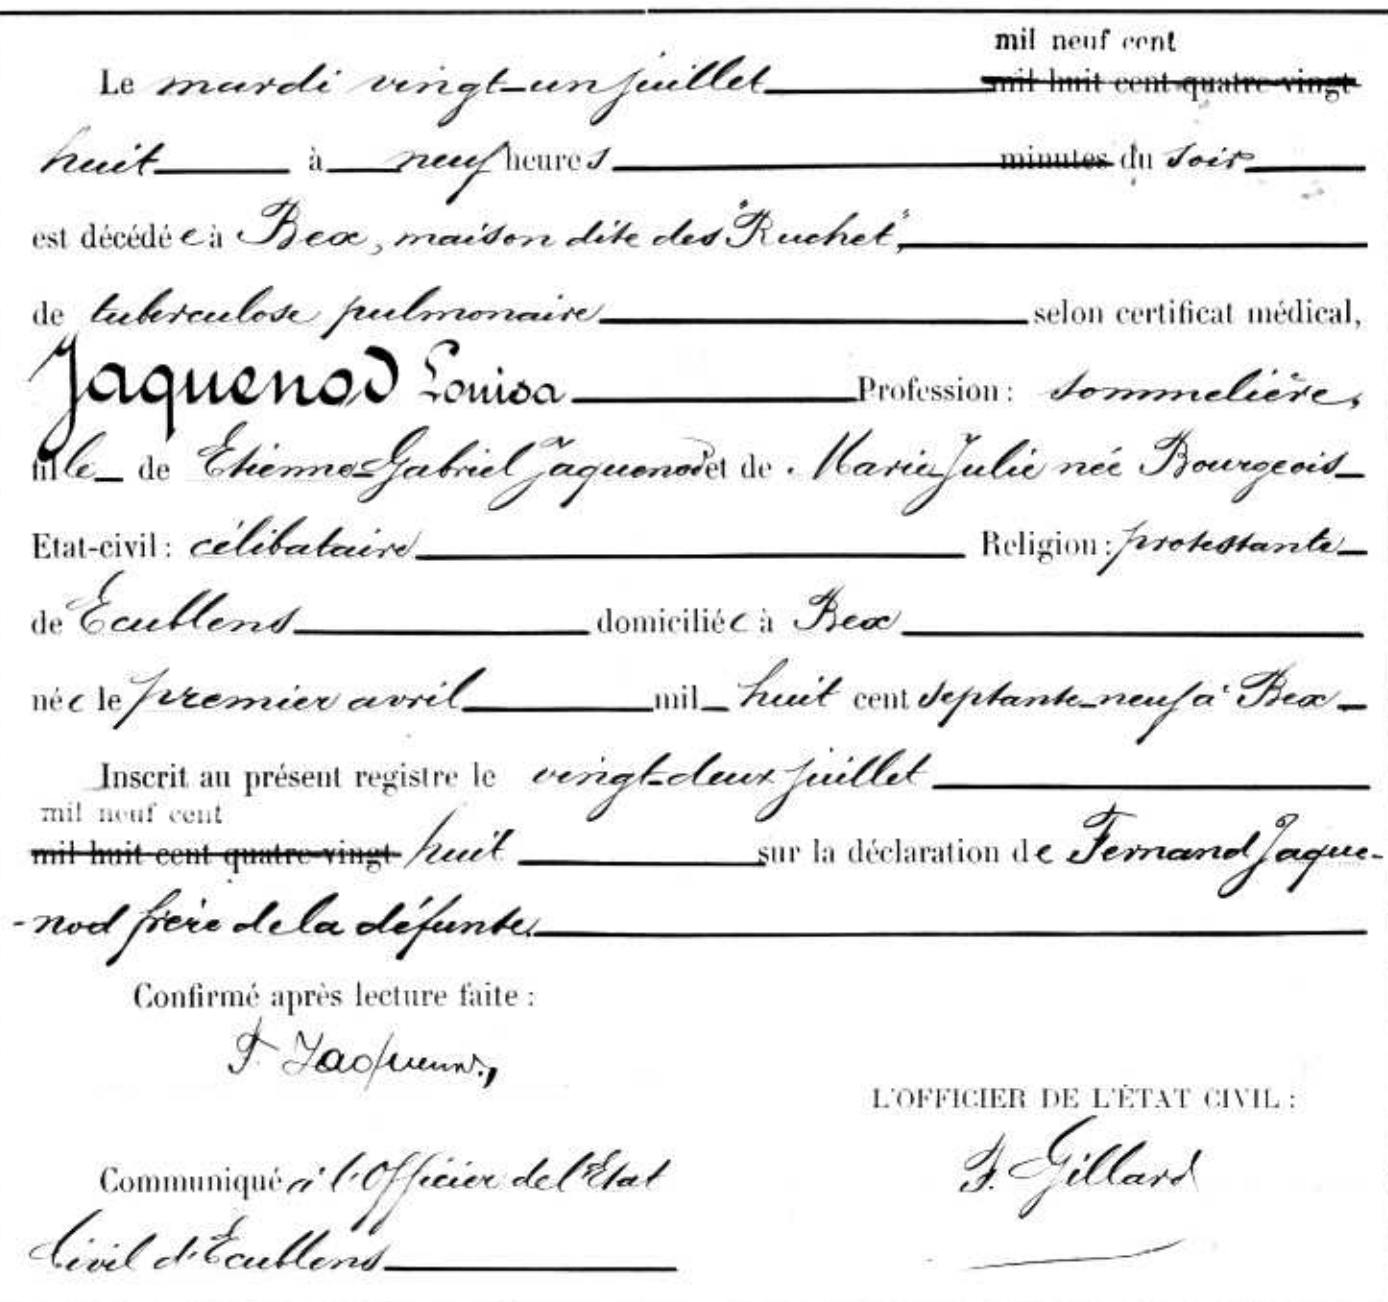 mil neuf cent
Le mardi vingt-un juillet mil huit cent quatre-vingt
huit à neuf heures minutes du soir
est décédée à Bex, maison dite des "Ruchet",
de tuberculose pulmonaire selon certificat médical,
Jaquenod Louisa Profession : sommelière,
fille de Etienne-Gabriel Jaquenod et de Marie Julie née Bourgeois
Etat-civil : célibataire Religion : protestante
de Ecublens domiciliée à Bex
née le premier avril mil huit cent septante-neuf à Bex
Inscrit au présent registre le vingt-deux juillet
mil neuf cent
mil huit cent quatre-vingt huit sur la déclaration de Fernand Jaque-
-nod frère de la défunte.
Confirmé après lecture faite :
F. Jaquenod
L'OFFICIER DE L'ÉTAT CIVIL :
F. Gillard
Communiqué à l'Officier de l'Etat
Civil d'Ecublens